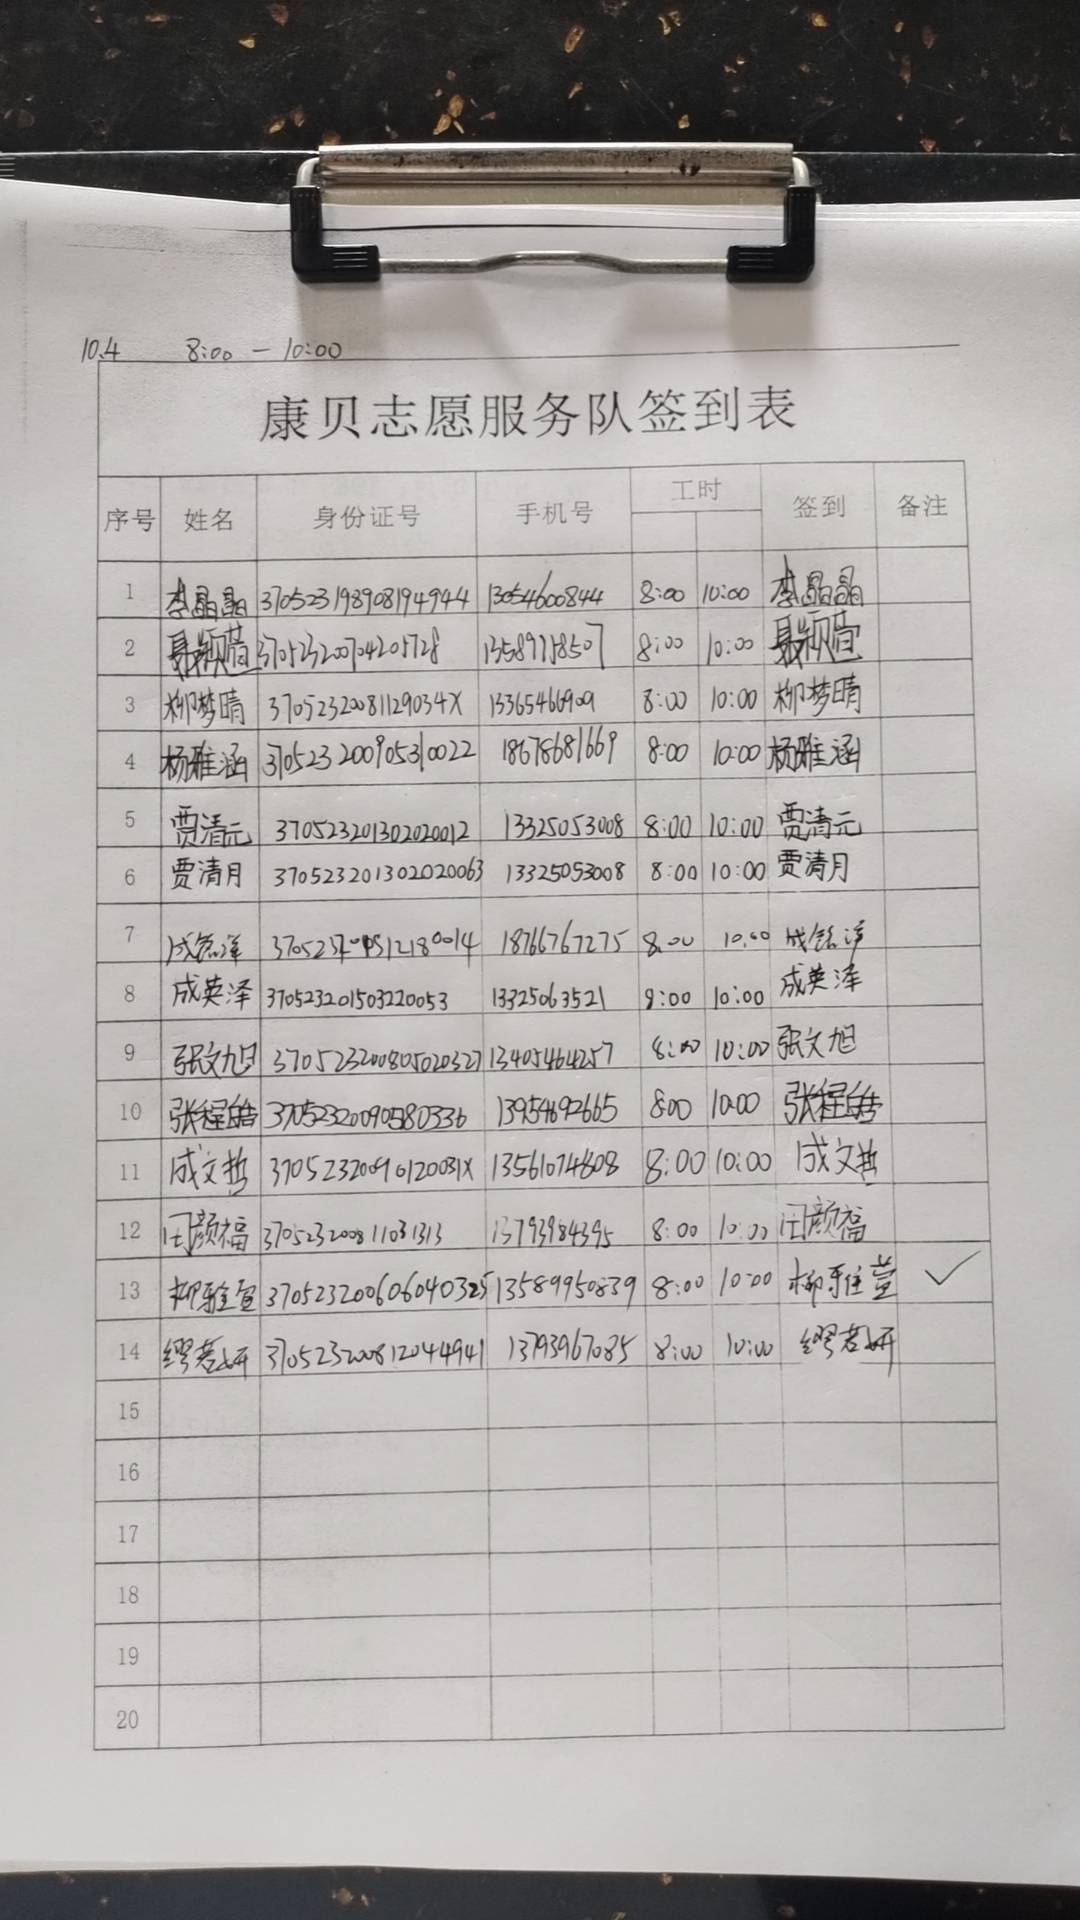 10.4 8:00 — 10:00
康贝志愿服务队签到表
序号 姓名 身份证号 手机号 工时 签到 备注
1 李晶晶 370523198908194944 13054600844 8:00 10:00 李晶晶
2 聂颖萱 370523200704201728 13589918507 8:00 10:00 聂颖萱
3 柳梦晴 37052320081129034X 13365466909 8:00 10:00 柳梦晴
4 杨雅涵 370523200905310022 18678681669 8:00 10:00 杨雅涵
5 贾清元 370523201302020012 13325053008 8:00 10:00 贾清元
6 贾清月 370523201302020063 13325053008 8:00 10:00 贾清月
7 18766767275 8:00 10:00
8 成英泽 370523201503220053 13325063521 8:00 10:00 成英泽
9 张文旭 370523200805020327 13405464257 8:00 10:00 张文旭
10 张程皓 13954692665 8:00 10:00 张程皓
11 成文哲 370523200910120031X 13561074808 8:00 10:00 成文哲
12 闫颜福 370523200811031313 13793984395 8:00 10:00 闫颜福
13 柳雅萱 370523200606040325 13589950839 8:00 10:00 柳雅萱 ✓
14 缪若妍 370523200812044941 13793967085 8:00 10:00 缪若妍
15
16
17
18
19
20